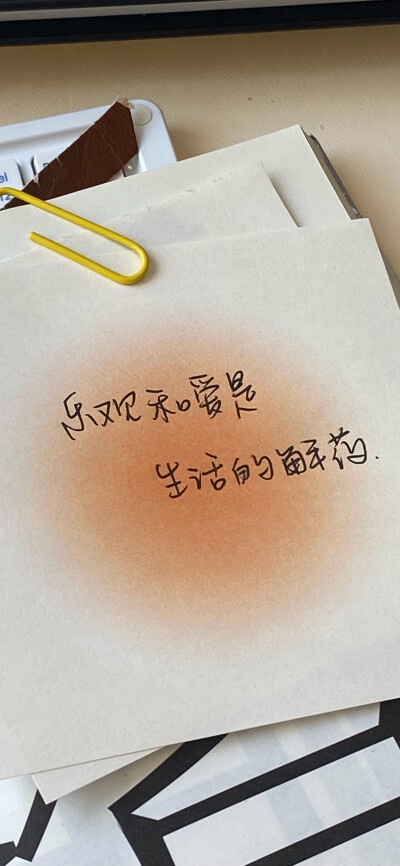 乐观和爱是
生活的解药.